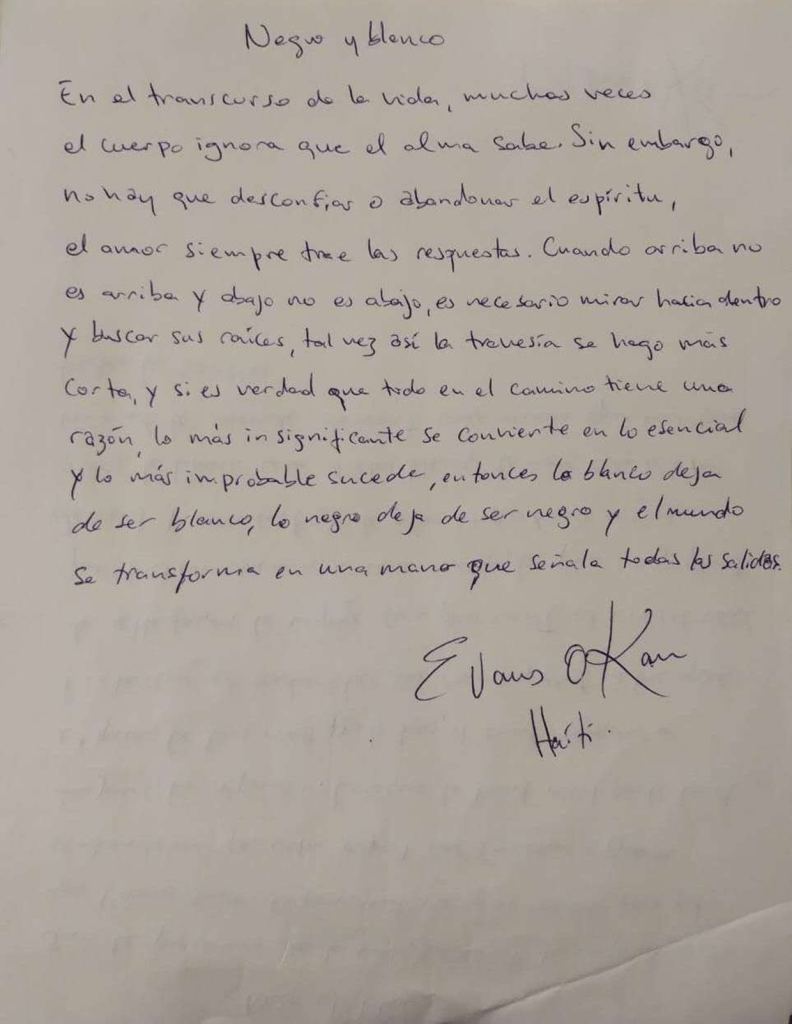 Negro y blanco
En el transcurso de la vida, muchas veces
el cuerpo ignora que el alma sabe. Sin embargo,
no hay que desconfiar o abandonar el espíritu,
el amor siempre trae las respuestas. Cuando arriba no
es arriba y abajo no es abajo, es necesario mirar hacia dentro
y buscar sus raíces, tal vez así la travesía se haga más
corta, y si es verdad que todo en el camino tiene una
razón, lo más insignificante se convierte en lo esencial
y lo más improbable sucede, entonces lo blanco deja
de ser blanco, lo negro deja de ser negro y el mundo
se transforma en una mano que señala todas las salidas.
Evans Okan
Haití.